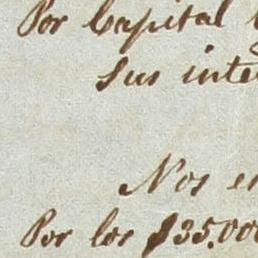 Por Capital
sus inte
Nos en
Por los $35.000